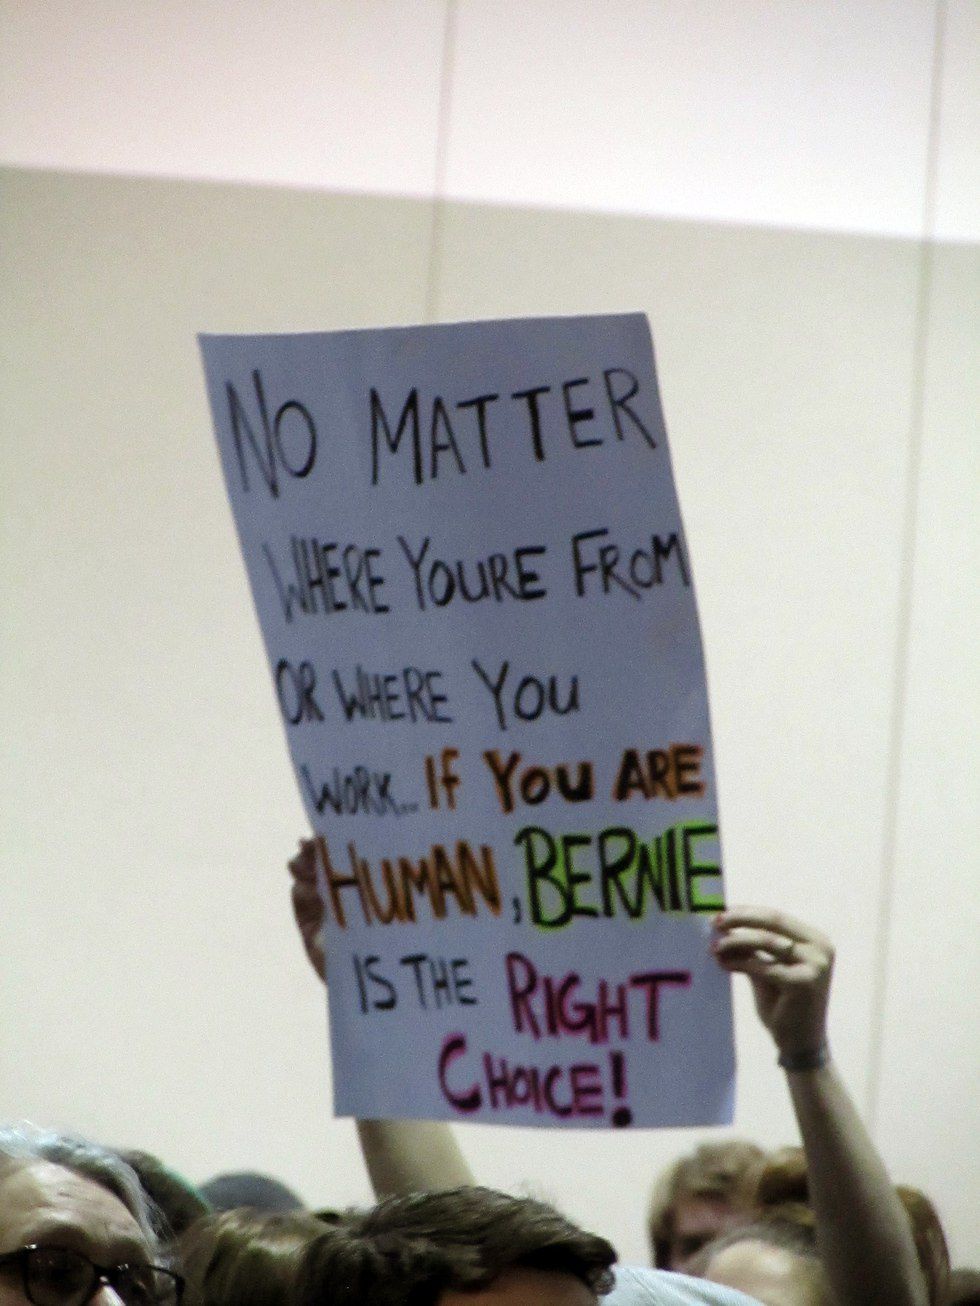 NO MATTER
WHERE YOURE FROM
OR WHERE YOU
WORK... IF YOU ARE
HUMAN, BERNIE
IS THE RIGHT
CHOICE!